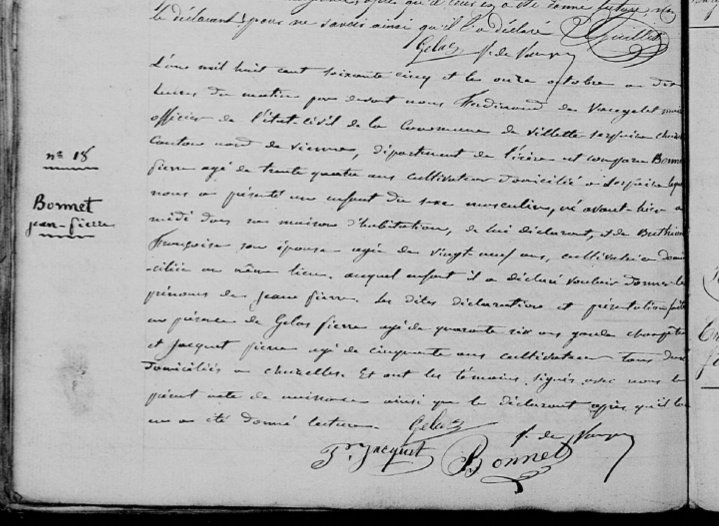 le déclarant pour ne savoir ainsi qu'il l'a déclaré
Guillet
Gelas f. de Vaugelet
L'an mil huit cent soixante cinq et le onze octobre a dix
heures du matin par devant nous Ferdinand de Vaugelet maire
officier de l'état-civil de la Commune de Villette Serpaize
Canton nord de Vienne, département de l'isère est comparu Bonnet
Pierre agé de trente quatre ans cultivateur domicilié a Serpaize lequel
nous a présenté un enfant du sexe masculin, né avant-hier a
midi dans sa maison d'habitation, de lui déclarant, et de
Françoise son épouse agée de vingt neuf ans, cultivatrice domi
-ciliée au même lieu, auquel enfant il a déclaré vouloir donner les
prénoms de Jean Pierre. Les dites déclaration et présentation faites
en présence de Gelas Pierre agé de quarante six ans garde champêtre
et Jacquet Pierre agé de cinquante ans cultivateur tous deux
domiciliés a Chuzelles. Et ont les témoins, signés avec nous le
présent acte de naissance ainsi que le déclarant après qu'il leur
en a été donné lecture.
Gelas f. de Vaugelet
Pre Jacquet Bonnet
n° 18
Bonnet
jean-Pierre